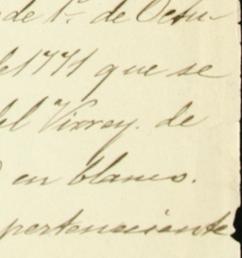 de 1º. de Octu-
de 1771 que se
del Virrey. de
en blanco.
perteneciente